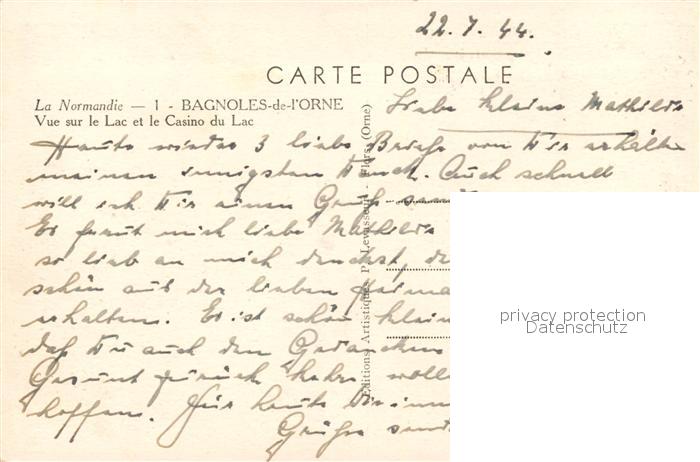 22.7.44.
CARTE POSTALE
La Normandie — 1 - BAGNOLES-de-l'ORNE
Vue sur le Lac et le Casino du Lac
Liebe kleine Mathilde
Heute wieder 3 liebe Briefe von Dir erhalten
meinen innigsten Dank. Auch schnell
will ich Dir einen Gruß
Es freut mich liebe Mathilde
so lieb an mich denkst,
schön aus der lieben
erhalten. Es ist schön
daß Du auch den Gedanken
Gesund zurück
hoffen. Für heute
Grüße
Editions Artistiques P. Levasseur - Flers (Orne)
privacy protection
Datenschutz